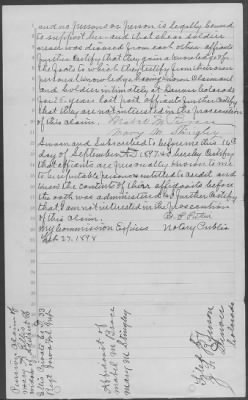 and no person or person is legally bound
to support her and that she or soldier
never was divorced from each other affiants
further Certify that they gain a knowledge of
the facts to which they testify from their own
personal knowledge having known Claimant
and soldier intimately at Denver Colorado
for 15 years last past affiants further Certify
that they are not interested in the prosecution
of this Claim. Mabel M.
Mary M. Shingley
Sworn and Subscribed to before me this 16th
day of September 1897 & I hereby Certify
that affiants are personally known to me
to be reputable persons entitled to Credit and
knew the contents of their affidavits before
the oath was administered & I further Certify
that I am not interested in the prosecution
of this Claim.
My Commission Expires Notary Public
Feb 27, 1898
Pension Claim of
Mary
Affidavit of
Mabel M.
Mary M. Shingley
Filed by
Denver
Colorado